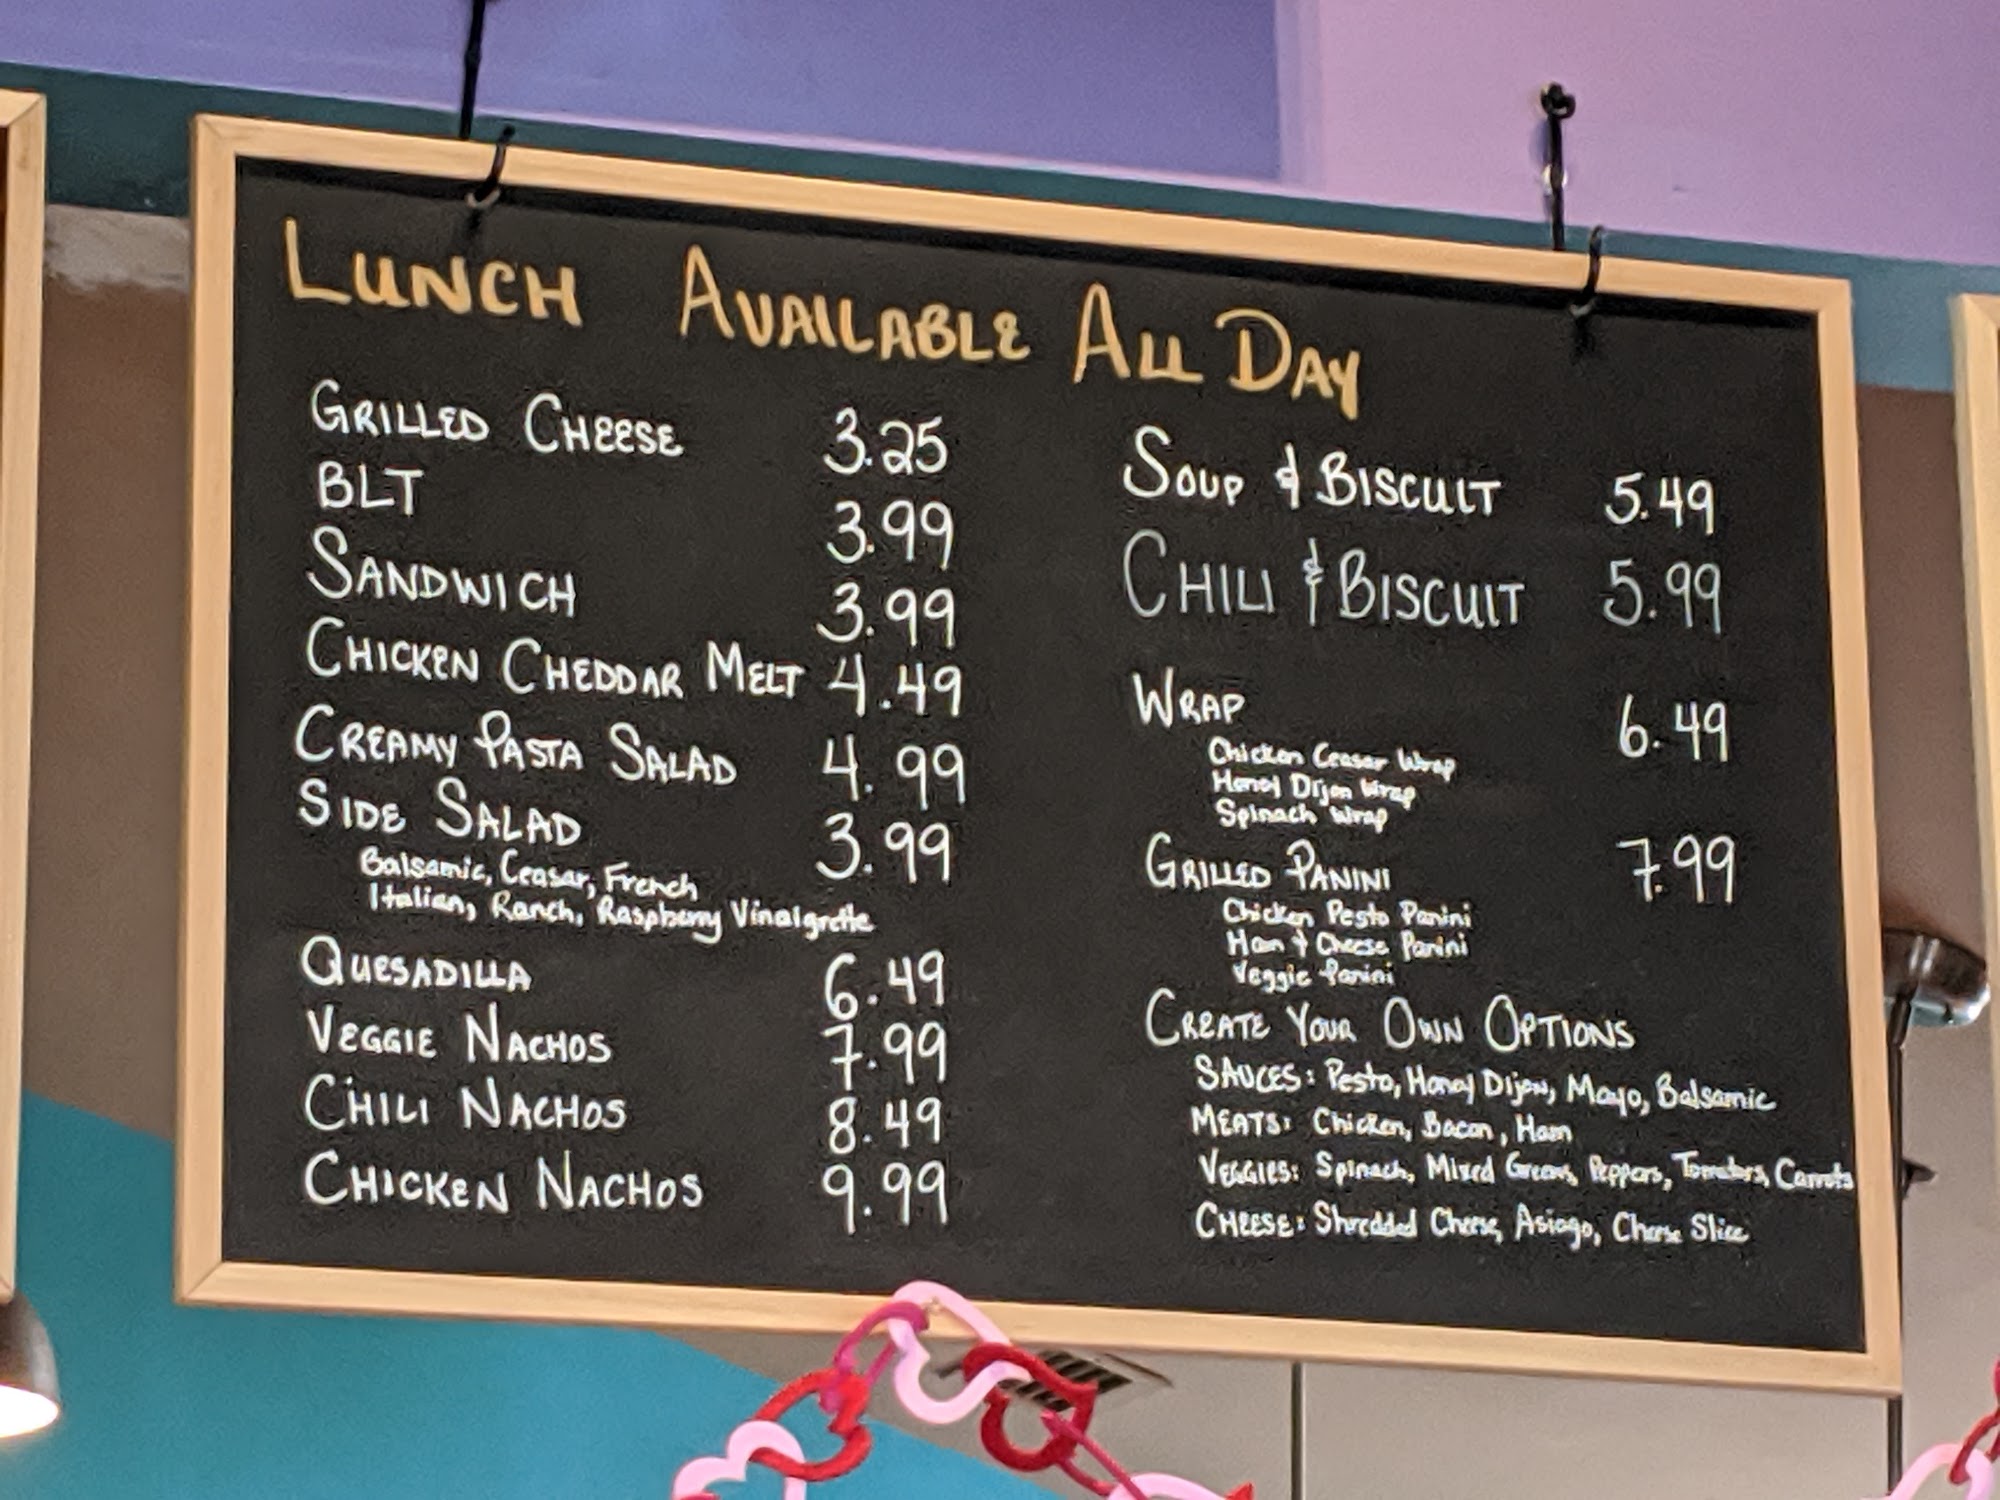 LUNCH AVAILABLE ALL DAY
GRILLED CHEESE 3.25
BLT 3.99
SANDWICH 3.99
CHICKEN CHEDDAR MELT 4.49
CREAMY PASTA SALAD 4.99
SIDE SALAD 3.99
Balsamic, Ceasar, French
Italian, Ranch, Raspberry Vinaigrette
QUESADILLA 6.49
VEGGIE NACHOS 7.99
CHILI NACHOS 8.49
CHICKEN NACHOS 9.99
SOUP & BISCUIT 5.49
CHILI & BISCUIT 5.99
WRAP 6.49
Chicken Ceasar Wrap
Honey Dijon Wrap
Spinach Wrap
GRILLED PANINI 7.99
Chicken Pesto Panini
Ham + Cheese Panini
Veggie Panini
CREATE YOUR OWN OPTIONS
SAUCES: Pesto, Honey Dijon, Mayo, Balsamic
MEATS: Chicken, Bacon, Ham
VEGGIES: Spinach, Mixed Greens, Peppers, Tomatoes, Carrots
CHEESE: Shredded Cheese, Asiago, Cheese Slice